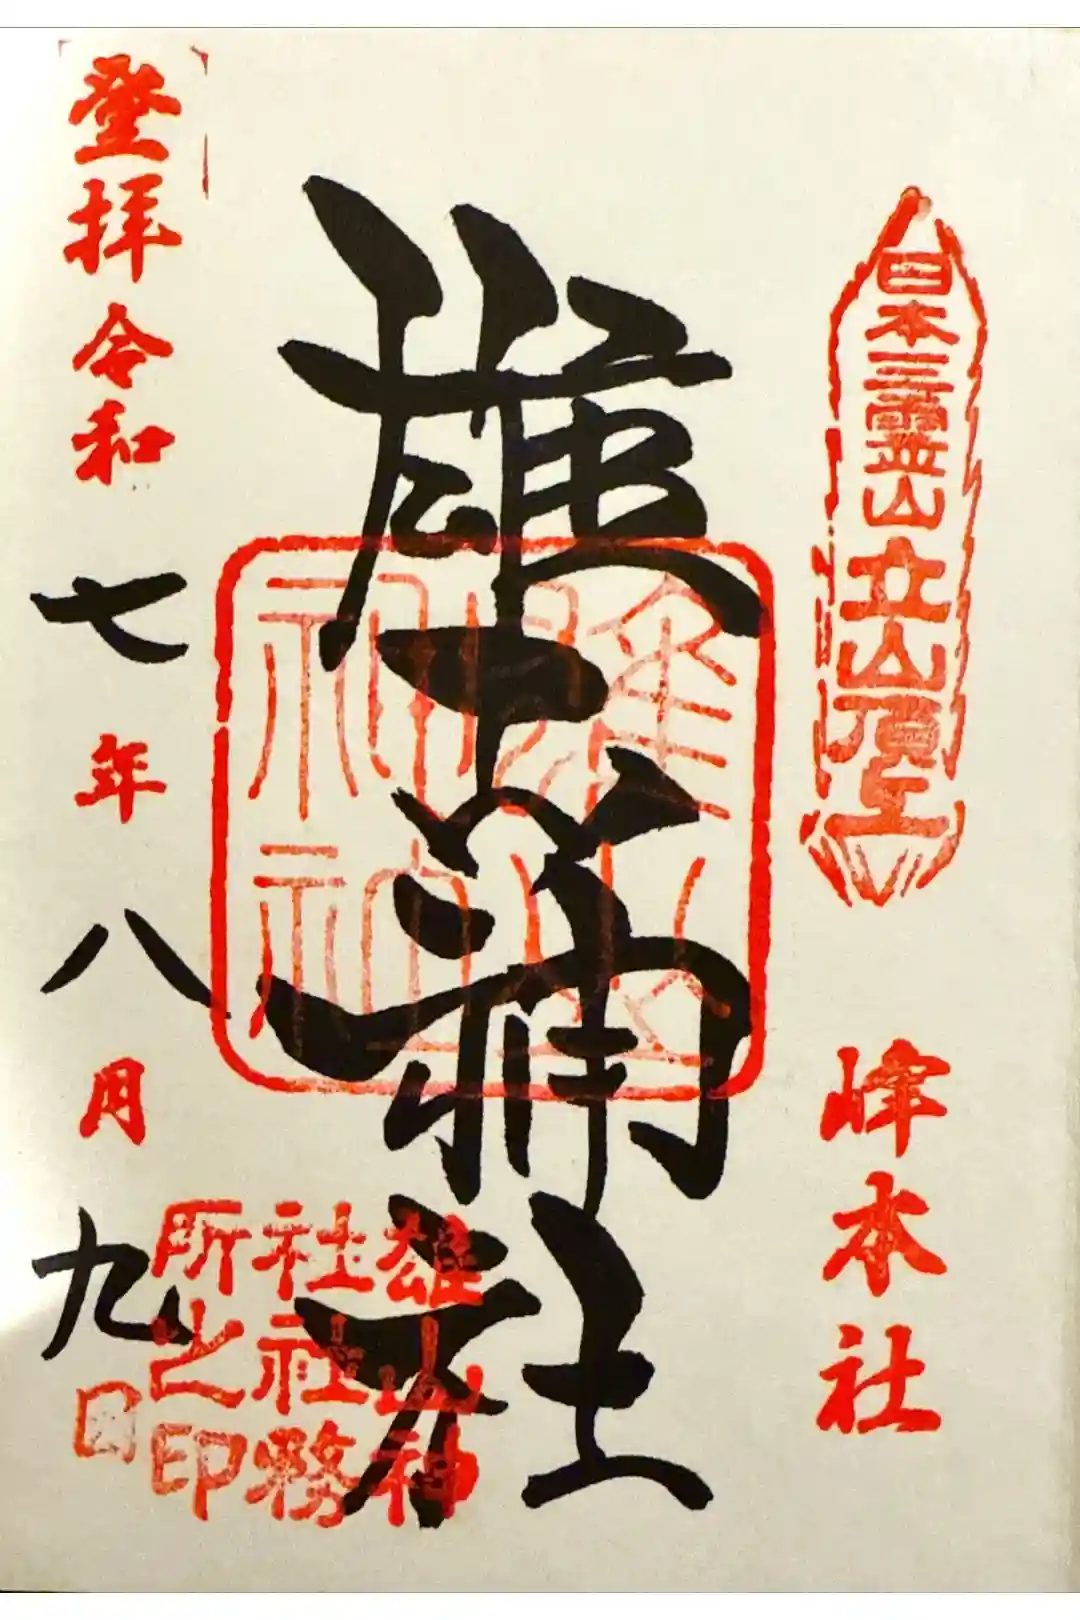 日本三霊山立山頂上
峰本社
雄山神社
雄山神
社社務
所之印
登拝令和七年八月九日